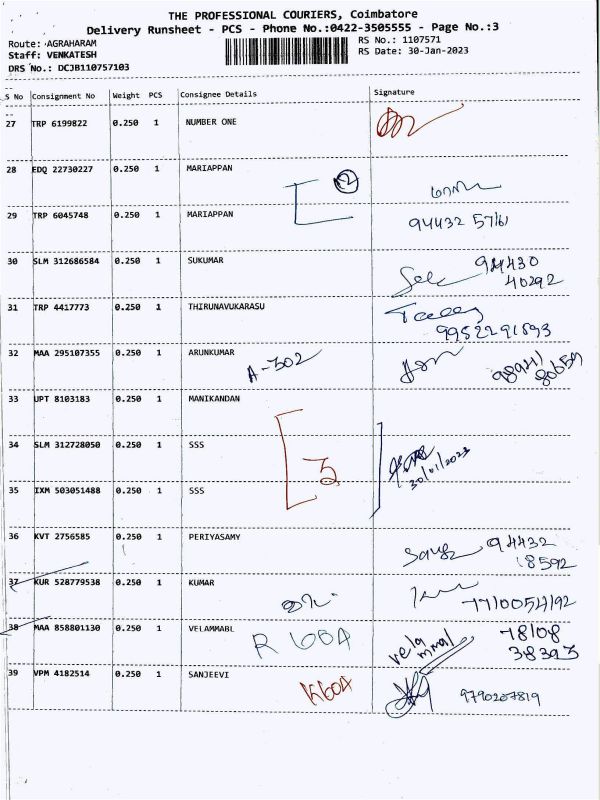 THE PROFESSIONAL COURIERS, Coimbatore
Delivery Runsheet - PCS - Phone No.:0422-3505555 - Page No.:3
Route: AGRAHARAM
RS No.: 1107571
Staff: VENKATESH
RS Date: 30-Jan-2023
DRS No.: DCJB110757103
S No Consignment No Weight PCS Consignee Details Signature
27 TRP 6199822 0.250 1 NUMBER ONE
28 EDQ 22730227 0.250 1 MARIAPPAN
2
29 TRP 6045748 0.250 1 MARIAPPAN
94432 57161
30 SLM 312686584 0.250 1 SUKUMAR
94430
40292
31 TRP 4417773 0.250 1 THIRUNAVUKARASU
9952291893
32 MAA 295107355 0.250 1 ARUNKUMAR A-302
98941
80659
33 UPT 8103183 0.250 1 MANIKANDAN
34 SLM 312728050 0.250 1 SSS
3
30/01/2023
35 IXM 503051488 0.250 1 SSS
36 KVT 2756585 0.250 1 PERIYASAMY
94432
18592
37 KUR 528779538 0.250 1 KUMAR
7710054192
38 MAA 858801130 0.250 1 VELAMMABL R 604
vela
mmal
78108
38393
39 VPM 4182514 0.250 1 SANJEEVI K604
9790207819